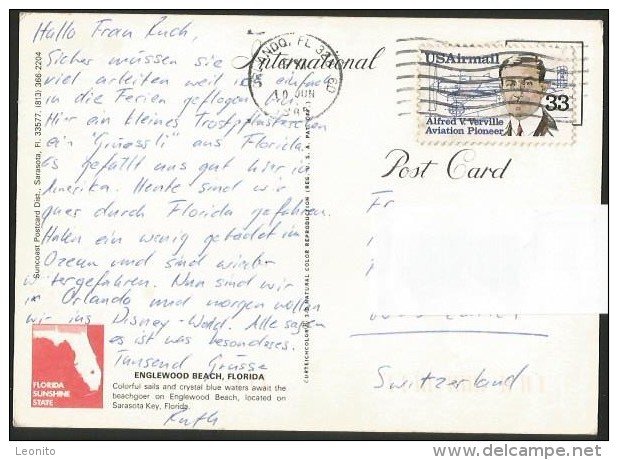 Hallo Frau Ruch,
Sicher müssen sie
viel arbeiten weil ich einfach
in die Ferien geflogen bin.
Hir ein kleines Trostpflästerchen
ein "Grüessli" aus Florida.
Es gefällt uns gut hier in
Amerika. Heute sind wir
quer durch Florida gefahren.
Haben ein wenig gebadet im
Ozean und sind wieder
weitergefahren. Nun sind wir
in Orlando und morgen wollen
wir ins Disney-World. Alle sagen
es ist was besonderes.
Tausend Grüsse
Ruth
Suncoast Postcard Dist., Sarasota, Fl. 33577. (813) 366-2204
FLORIDA
SUNSHINE
STATE
ENGLEWOOD BEACH, FLORIDA
Colorful sails and crystal blue waters await the
beachgoer on Englewood Beach, located on
Sarasota Key, Florida.
CURTEICHCOLOR® 3-D NATURAL COLOR REPRODUCTION (REG. U.S.A. PAT. OFF.)
International
Post Card
ORLANDO, FL
10 JUN
USAirmail
33
Alfred V. Verville
Aviation Pioneer
Fr
Switzerland
Leonito
www.delcampe.net